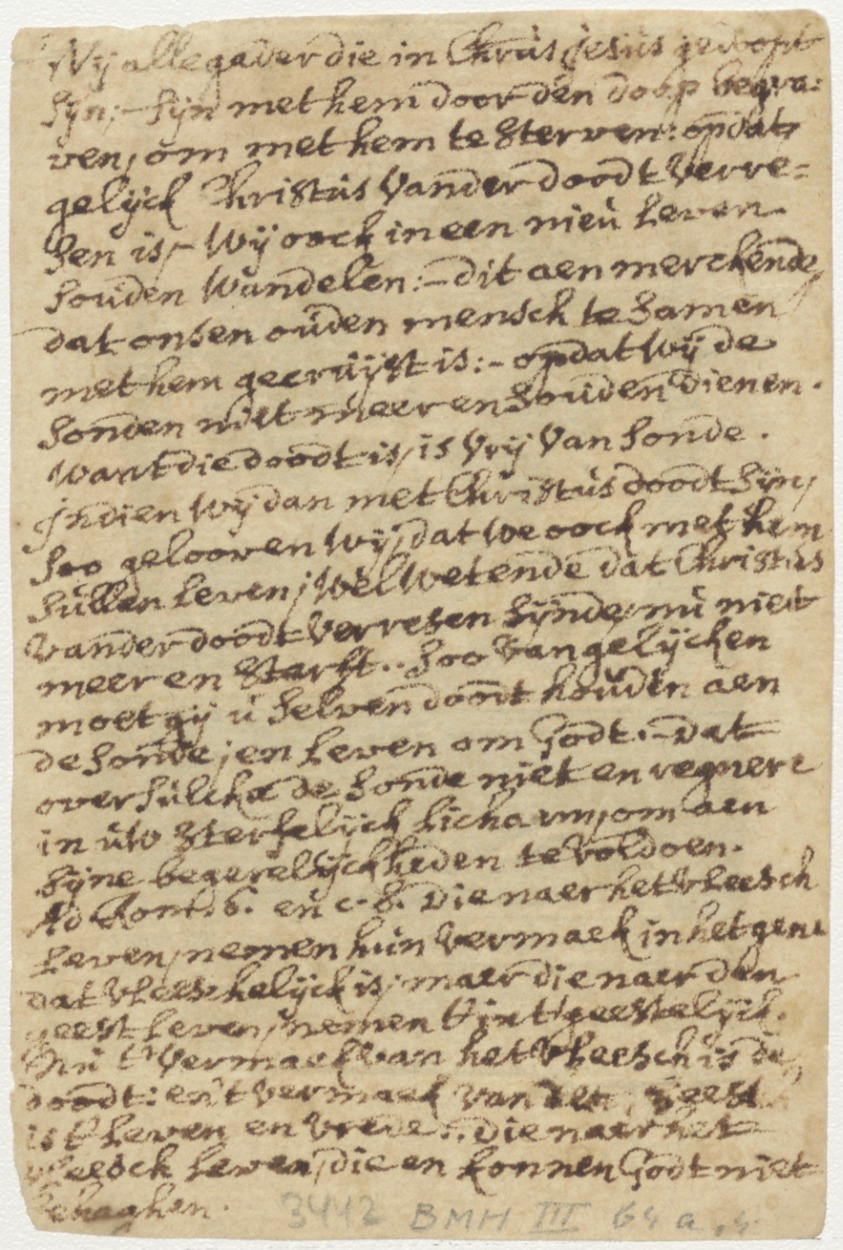 Wij alle gader die in Christ Jesus gedoopt
sijn;- sijn met hem door den doop begra:
ven, om met hem te sterven: opdat,
gelijck Christus vander doodt verre=
sen is,- wij oock in een nieu leven
souden wandelen:- dit aenmerckende,
dat onsen ouden mensch te samen
met hem gecruijst is:- opdat wij de
sonden niet meer en souden dienen.
want die doodt is, is vrij van sonde.
Indien wij dan met Christus doodt sijn,
soo gelooven wij, dat we oock met hem
sullen leven; wel wetende dat Christus
vander doodt verresen sijnde, nu niet
meer en starft.. soo van gelijcken
moet gij u selven doodt houden aen
de sonde; en leven om Godt.- dat
over sulckx de sonde niet en regnere
in uw sterfelijck lichaem, om aen
sijne begerelijckheden te voldoen.
Ad Rom. 6. en c. 8. Die naer het vleesch
leven, nemen hun vermaek in het gene
dat vleeschelijck is, maer die naer den
geest leven, nemen t' in t' geestelijck.
Nu t' vermaek van het vleesch is de
doodt: en 't vermaek van den geest
is t' leven en vrede.. die naer het
vleesch leven, die en konnen Godt niet
behaghen.
3442 BMH III 64 a.4